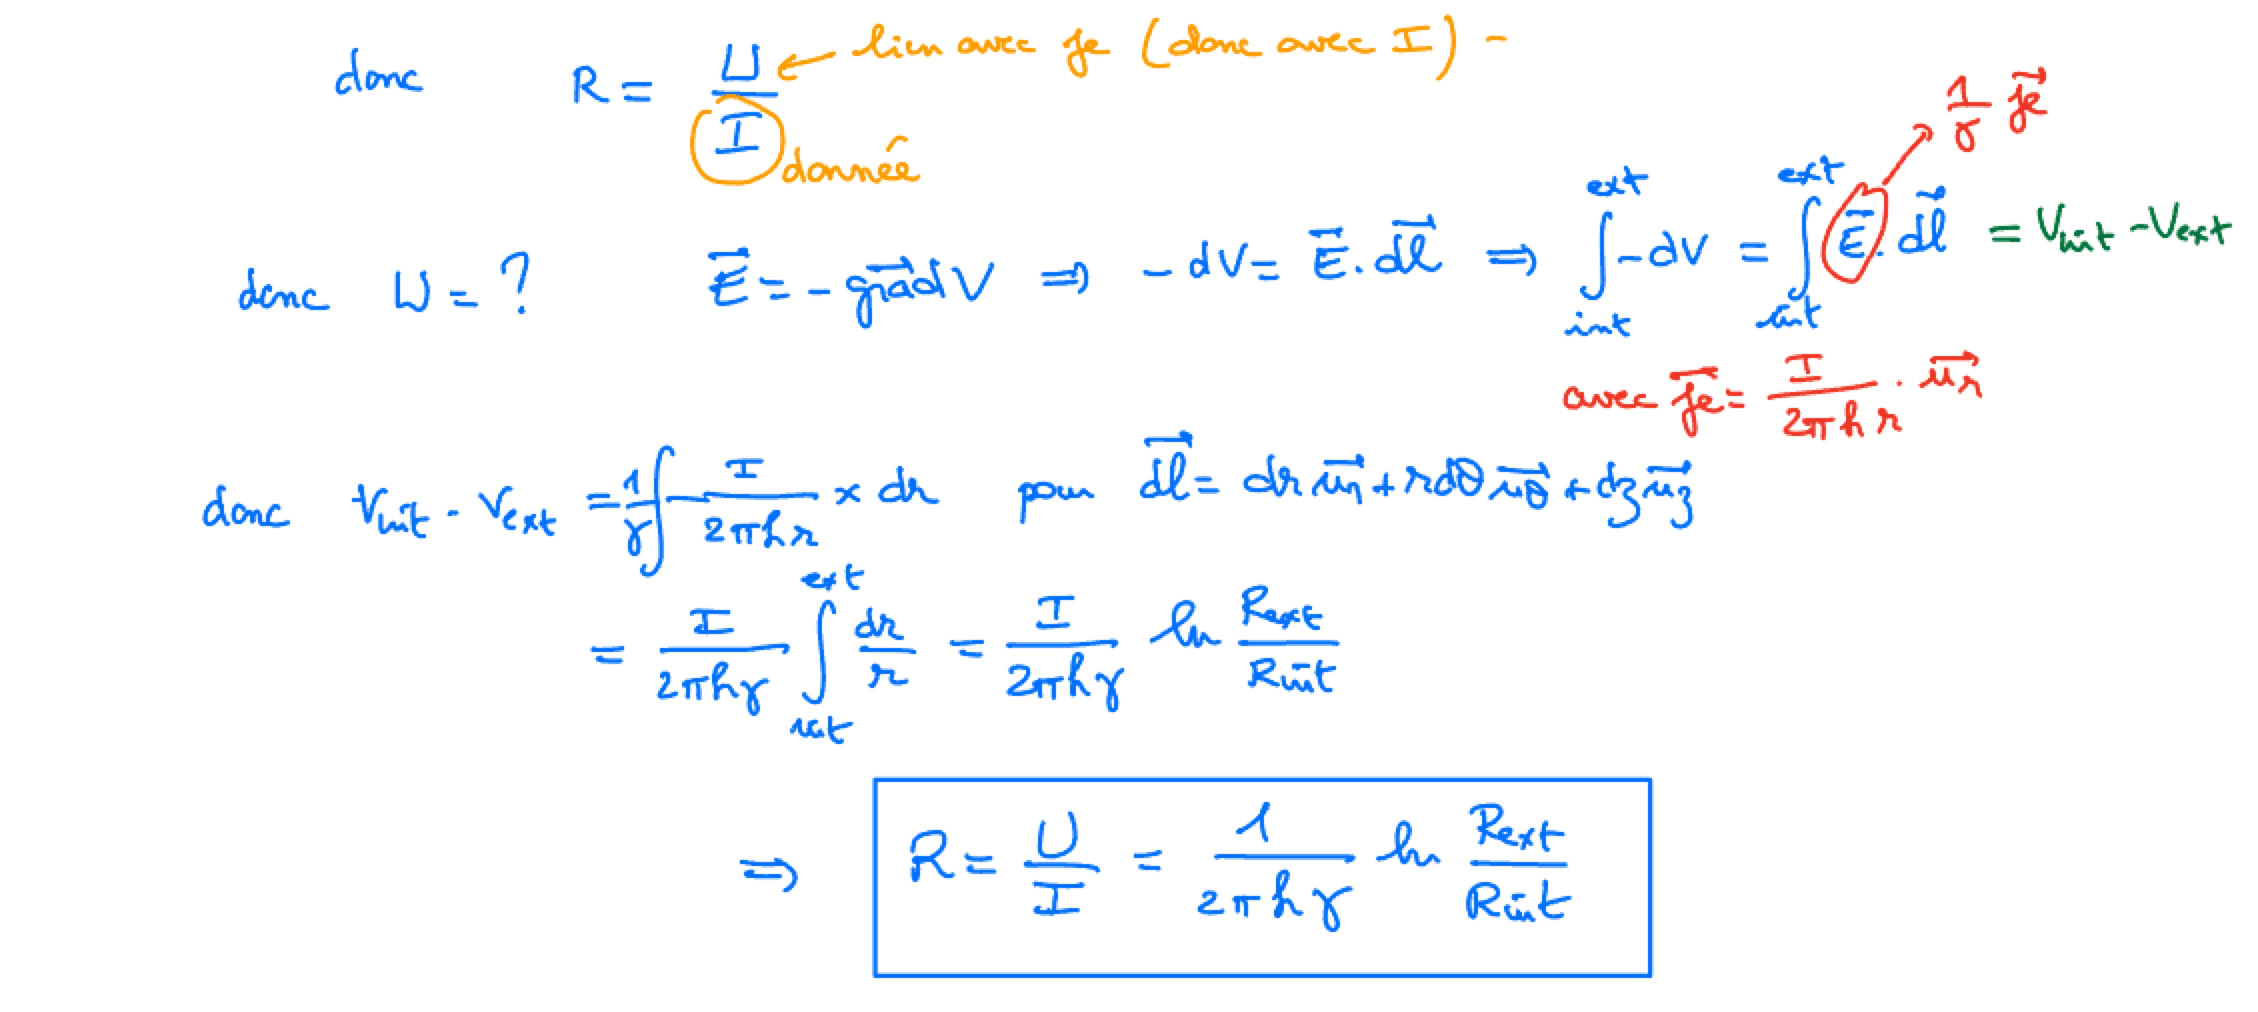 donc R = U/I ← lien avec je (donc avec I) -
donnée
1/γ j⃗e
donc U = ? E⃗ = - grad⃗ V ⇒ - dV = E⃗ . dl⃗ ⇒ ∫_int^ext -dV = ∫_int^ext E⃗ . dl⃗ = Vint - Vext
avec j⃗e = I/(2πhr) . u⃗r
donc Vint - Vext = 1/γ ∫ I/(2πhr) × dr pour dl⃗ = dr u⃗r + rdθ u⃗θ + dz u⃗z
= I/(2πhγ) ∫_int^ext dr/r = I/(2πhγ) ln Rext/Rint
⇒ R = U/I = 1/(2πhγ) ln Rext/Rint